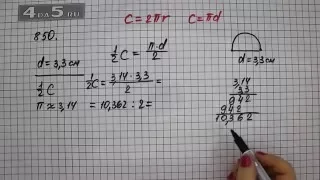 4 на 5.ru
C = 2πr   C = πd
850.
d = 3,3 см
½C
π ≈ 3,14
½C = π·d/2
½C = 3,14·3,3/2 =
= 10,362 : 2 =
d = 3,3 см
3,14
3,3
942
942
10,362